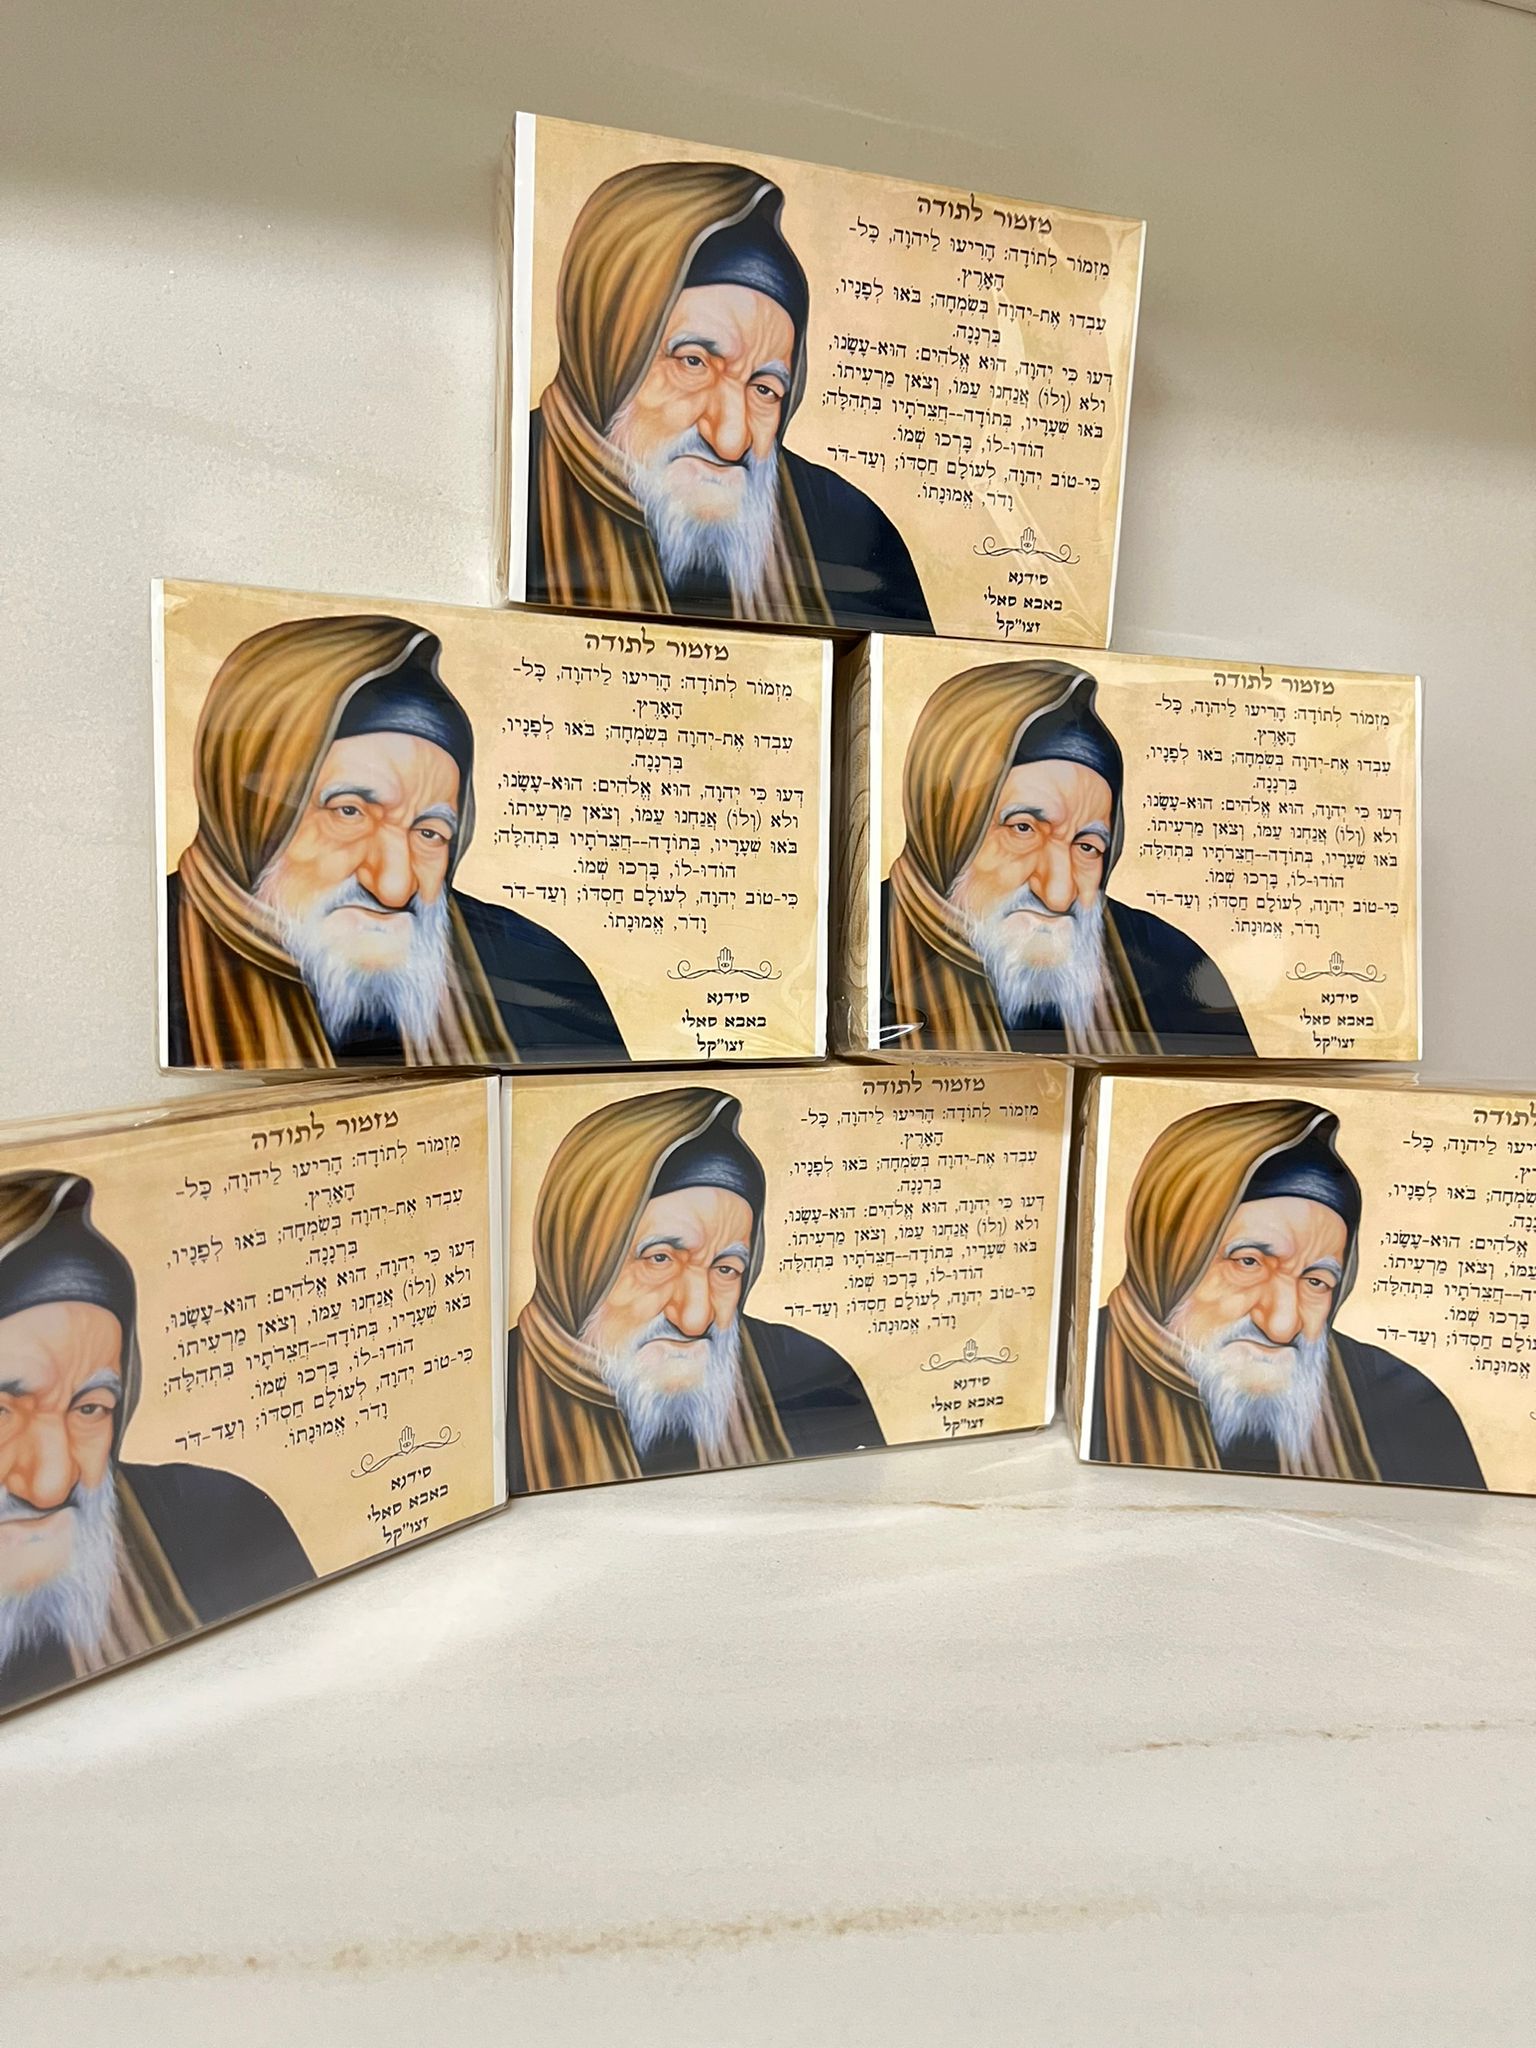 מזמור לתודה
מִזְמוֹר לְתוֹדָה: הָרִיעוּ לַיהוָה, כָּל-
הָאָרֶץ.
עִבְדוּ אֶת-יְהוָה בְּשִׂמְחָה; בֹּאוּ לְפָנָיו,
בִּרְנָנָה.
דְּעוּ כִּי יְהוָה, הוּא אֱלֹהִים: הוּא-עָשָׂנוּ,
ולא (וְלוֹ) אֲנַחְנוּ עַמּוֹ, וְצֹאן מַרְעִיתוֹ.
בֹּאוּ שְׁעָרָיו, בְּתוֹדָה--חֲצֵרֹתָיו בִּתְהִלָּה;
הוֹדוּ-לוֹ, בָּרְכוּ שְׁמוֹ.
כִּי-טוֹב יְהוָה, לְעוֹלָם חַסְדּוֹ; וְעַד-דֹּר
וָדֹר, אֱמוּנָתוֹ.
סידנא
באבא סאלי
זצו"קל
מזמור לתודה
מִזְמוֹר לְתוֹדָה: הָרִיעוּ לַיהוָה, כָּל-
הָאָרֶץ.
עִבְדוּ אֶת-יְהוָה בְּשִׂמְחָה; בֹּאוּ לְפָנָיו,
בִּרְנָנָה.
דְּעוּ כִּי יְהוָה, הוּא אֱלֹהִים: הוּא-עָשָׂנוּ,
ולא (וְלוֹ) אֲנַחְנוּ עַמּוֹ, וְצֹאן מַרְעִיתוֹ.
בֹּאוּ שְׁעָרָיו, בְּתוֹדָה--חֲצֵרֹתָיו בִּתְהִלָּה;
הוֹדוּ-לוֹ, בָּרְכוּ שְׁמוֹ.
כִּי-טוֹב יְהוָה, לְעוֹלָם חַסְדּוֹ; וְעַד-דֹּר
וָדֹר, אֱמוּנָתוֹ.
סידנא
באבא סאלי
זצו"קל
מזמור לתודה
מִזְמוֹר לְתוֹדָה: הָרִיעוּ לַיהוָה, כָּל-
הָאָרֶץ.
עִבְדוּ אֶת-יְהוָה בְּשִׂמְחָה; בֹּאוּ לְפָנָיו,
בִּרְנָנָה.
דְּעוּ כִּי יְהוָה, הוּא אֱלֹהִים: הוּא-עָשָׂנוּ,
ולא (וְלוֹ) אֲנַחְנוּ עַמּוֹ, וְצֹאן מַרְעִיתוֹ.
בֹּאוּ שְׁעָרָיו, בְּתוֹדָה--חֲצֵרֹתָיו בִּתְהִלָּה;
הוֹדוּ-לוֹ, בָּרְכוּ שְׁמוֹ.
כִּי-טוֹב יְהוָה, לְעוֹלָם חַסְדּוֹ; וְעַד-דֹּר
וָדֹר, אֱמוּנָתוֹ.
סידנא
באבא סאלי
זצו"קל
מזמור לתודה
מִזְמוֹר לְתוֹדָה: הָרִיעוּ לַיהוָה, כָּל-
הָאָרֶץ.
עִבְדוּ אֶת-יְהוָה בְּשִׂמְחָה; בֹּאוּ לְפָנָיו,
בִּרְנָנָה.
דְּעוּ כִּי יְהוָה, הוּא אֱלֹהִים: הוּא-עָשָׂנוּ,
ולא (וְלוֹ) אֲנַחְנוּ עַמּוֹ, וְצֹאן מַרְעִיתוֹ.
בֹּאוּ שְׁעָרָיו, בְּתוֹדָה--חֲצֵרֹתָיו בִּתְהִלָּה;
הוֹדוּ-לוֹ, בָּרְכוּ שְׁמוֹ.
כִּי-טוֹב יְהוָה, לְעוֹלָם חַסְדּוֹ; וְעַד-דֹּר
וָדֹר, אֱמוּנָתוֹ.
סידנא
באבא סאלי
זצו"קל
מזמור לתודה
מִזְמוֹר לְתוֹדָה: הָרִיעוּ לַיהוָה, כָּל-
הָאָרֶץ.
עִבְדוּ אֶת-יְהוָה בְּשִׂמְחָה; בֹּאוּ לְפָנָיו,
בִּרְנָנָה.
דְּעוּ כִּי יְהוָה, הוּא אֱלֹהִים: הוּא-עָשָׂנוּ,
ולא (וְלוֹ) אֲנַחְנוּ עַמּוֹ, וְצֹאן מַרְעִיתוֹ.
בֹּאוּ שְׁעָרָיו, בְּתוֹדָה--חֲצֵרֹתָיו בִּתְהִלָּה;
הוֹדוּ-לוֹ, בָּרְכוּ שְׁמוֹ.
כִּי-טוֹב יְהוָה, לְעוֹלָם חַסְדּוֹ; וְעַד-דֹּר
וָדֹר, אֱמוּנָתוֹ.
סידנא
באבא סאלי
זצו"קל
לתודה
לַיהוָה, כָּל-
בֹּאוּ לְפָנָיו,
הוּא-עָשָׂנוּ,
עַמּוֹ, וְצֹאן מַרְעִיתוֹ.
--חֲצֵרֹתָיו בִּתְהִלָּה;
בָּרְכוּ שְׁמוֹ.
חַסְדּוֹ; וְעַד-דֹּר
אֱמוּנָתוֹ.